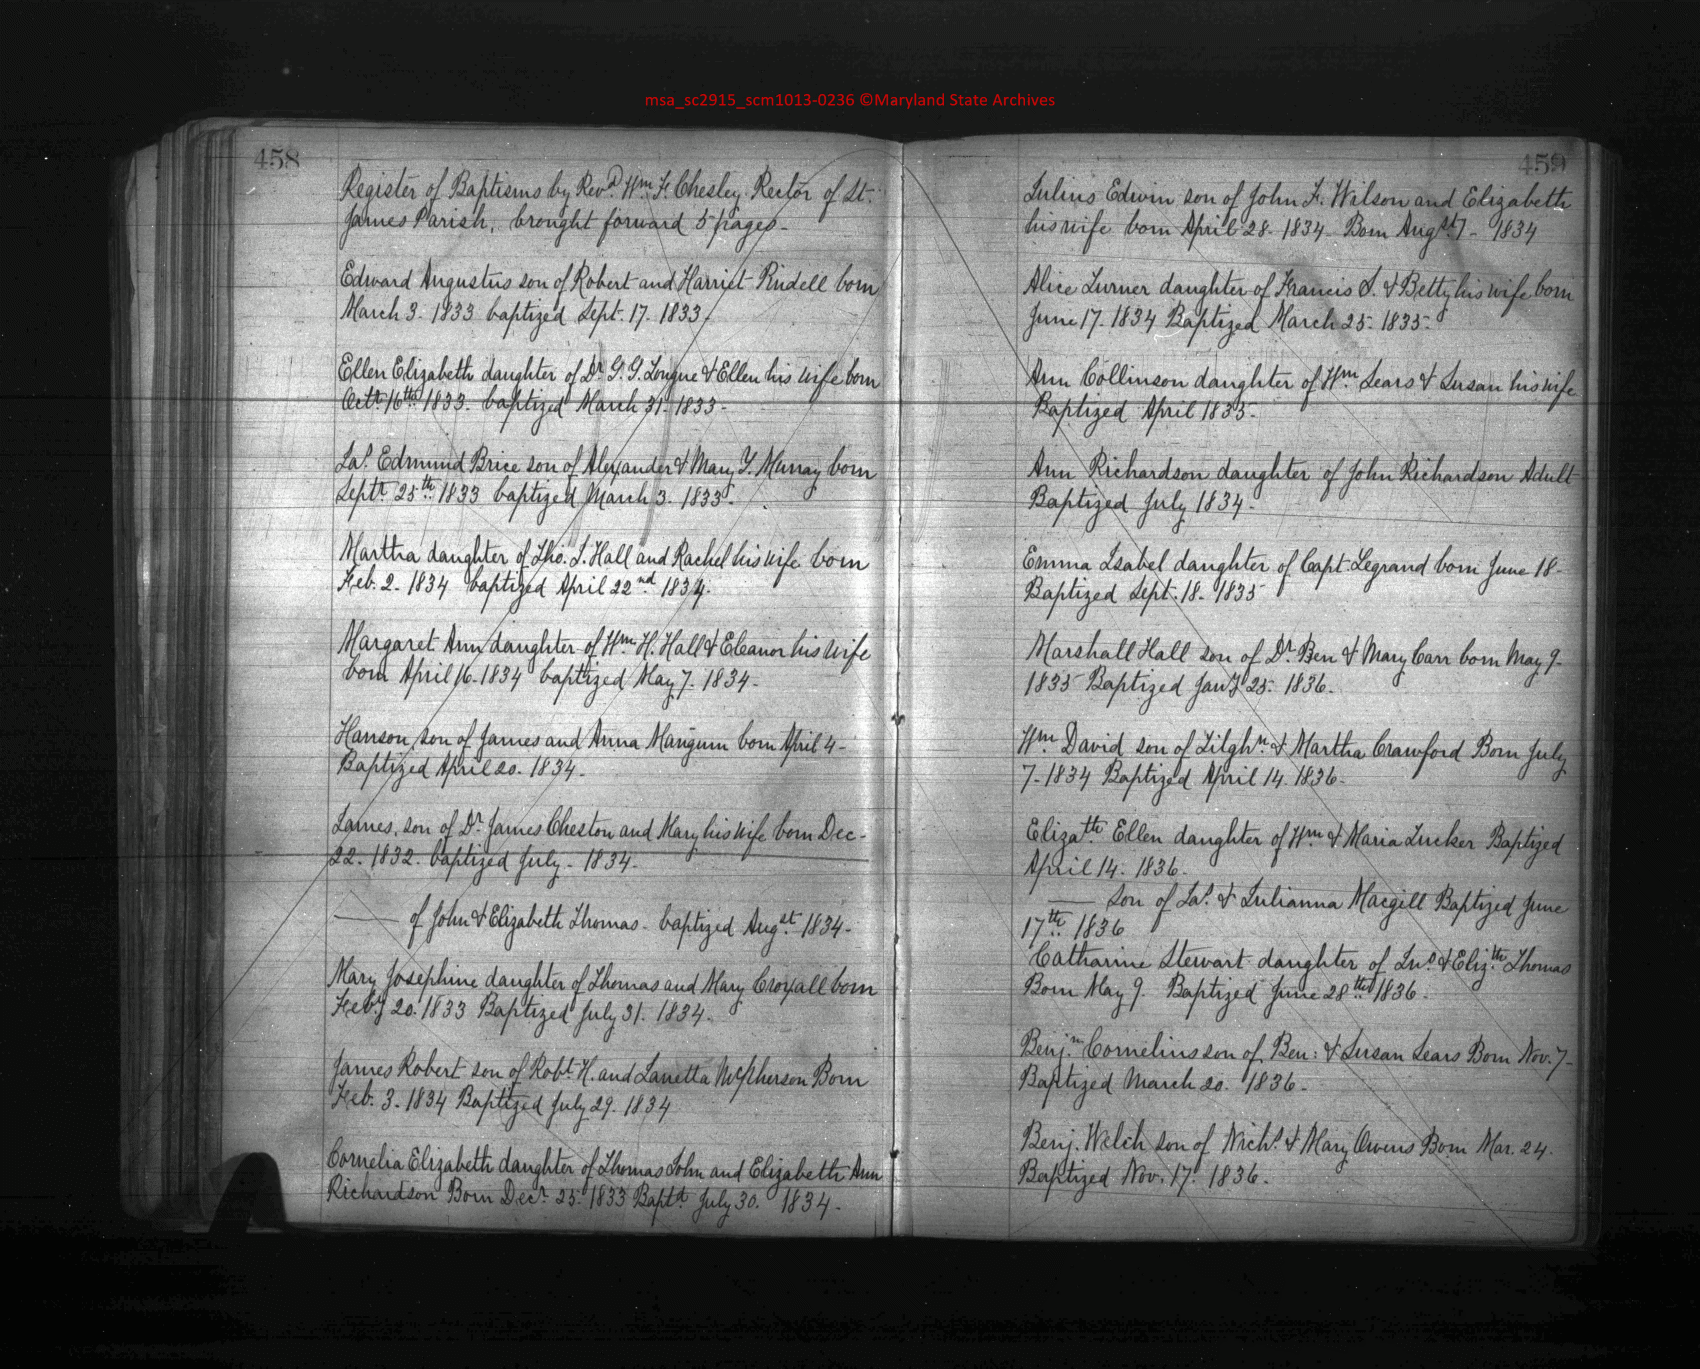 msa_sc2915_scm1013-0236 ©Maryland State Archives
458
Register of Baptisms by Revd. Wm. F. Chesley Rector of St.
James Parish, brought forward 5 pages-
Edward Augustus son of Robert and Harriet Rudell born
March 3. 1833 baptized Sept. 17. 1833-
Ellen Elizabeth daughter of Dr. G. G. & Ellen his wife born
Octr. 16th 1833. baptized March 31. 1833-
Jas. Edmund Brice son of Alexander & Mary Y. Murray born
Septr. 25th. 1833 baptized March 3. 1833-
Martha daughter of Tho. J. Hall and Rachel his wife born
Feb. 2. 1834 baptized April 22nd. 1834.
Margaret Ann daughter of Wm. H. Hall & Eleanor his wife
born April 16. 1834 baptized May 7. 1834-
Hanson, son of James and Anna Mangum born April 4-
Baptized April 20. 1834.
James, son of Dr. James Cheston and Mary his wife born Dec-
22. 1832. baptized July - 1834.
—— of John & Elizabeth Thomas- baptized Augst. 1834-
Mary Josephine daughter of Thomas and Mary Croxall born
Feby 20. 1833 Baptized July 31. 1834.
James Robert son of Robt. H. and McPherson Born
Feb. 3. 1834 Baptized July 29. 1834
Cornelia Elizabeth daughter of Thomas John and Elizabeth Ann
Richardson Born Decr. 25. 1833 Baptd. July 30. 1834.
459
Julius Edwin son of John F. Wilson and Elizabeth
his wife born April 28. 1834- Born Augst. 7- 1834
Alice Turner daughter of Francis S. & Betty his wife born
June 17. 1834 Baptized March 25. 1835.
Ann Collinson daughter of Wm. Sears & Susan his wife
Baptized April 1835.
Ann Richardson daughter of John Richardson Adult
Baptized July 1834-
Emma Isabel daughter of Capt Legrand born June 18-
Baptized Sept. 18. 1835
Marshall Hall son of Dr. Ben & Mary Carr born May 9-
1835 Baptized Jany 25. 1836.
Wm. David son of Tilghn. & Martha Crawford Born July
7. 1834 Baptized April 14. 1836-
Elizath. Ellen daughter of Wm & Maria Tucker Baptized
April 14. 1836.
—— Son of Jas. & Julianna Macgill Baptized June
17th. 1836
Catharine Stewart daughter of Jno. & Elizth. Thomas
Born May 9. Baptized June 28th 1836.
Benjn. Cornelius son of Ben: & Susan Sears Born Nov. 7-
Baptized March 20. 1836-
Benj. Welch son of Nichs. & Mary Owens Born Mar. 24.
Baptized Nov. 17. 1836.